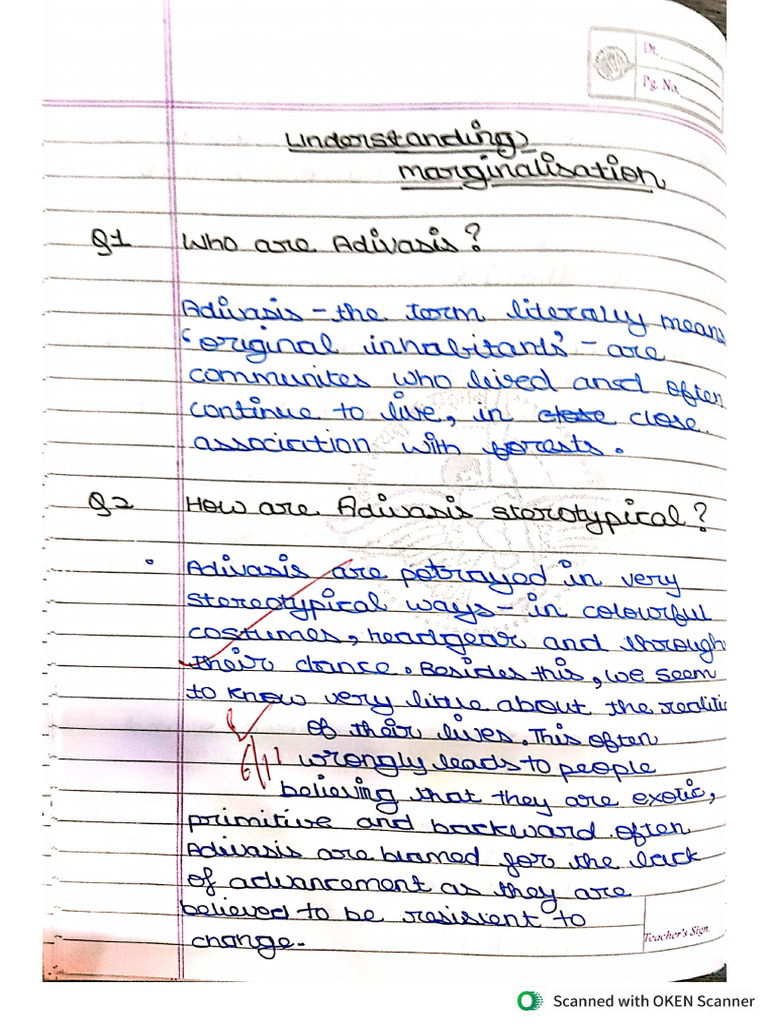 Dt.
Pg. No.
Understanding
marginalisation
Q1 Who are Adivasis?
Adivasis - the term literally means
'original inhabitants' - are
communites who lived and often
continue to live, in close close
association with forests.
Q2 How are Adivasis sterotypical?
Adivasis are potrayed in very
stereotypical ways - in colourful
costumes, headgear and through
their dance. Besides this, we seem
to know very little about the realitie
of their lives. This often
wrongly leads to people
believing that they are exotic,
primitive and backward. often
Adivasis are blamed for the lack
of advancement as they are
believed to be resistent to
change.
Teacher's Sign.
Scanned with OKEN Scanner